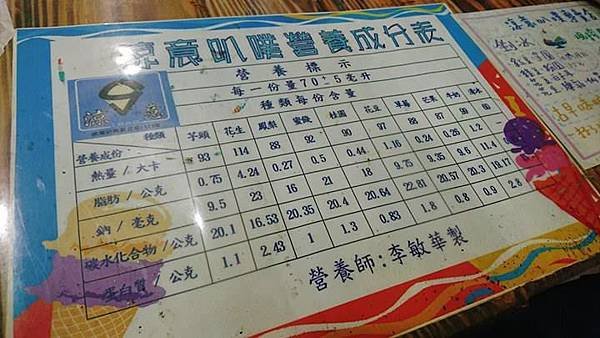 涼意叭噗營養成分表
營養標示
每一份量70±5毫升
種類每份含量
種類 芋頭 花生 鳳梨 桂圓 花豆 草莓 芒果 牛奶
營養成份
熱量/大卡 93 114 88 92 90 97 88 87 99
脂肪/公克 0.75 4.24 0.27 0.5 0.44 1.16 0.24 0.26 1.2
鈉/毫克 9.5 23 16 21 18 9.75 9.35 9.6 11.4
碳水化合物/公克 20.1 16.53 20.35 20.4 20.64 22.81 20.57 20.3 19.17
蛋白質/公克 1.1 2.43 1 1.3 0.83 1.8 0.8 0.9 2.8
營養師:李敏華製